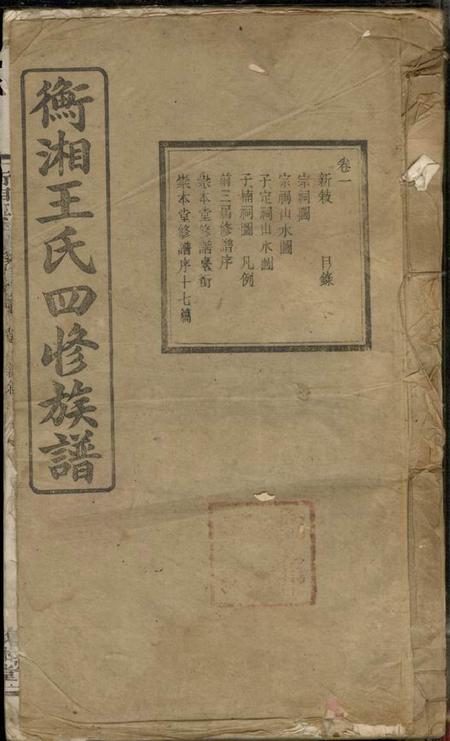 衡湘王氏四修族譜
卷一
新敘 目錄
宗祠圖
宗祠山水圖
子定祠山水圖
子楠祠圖 凡例
前三屆修譜序
崇本堂修譜銜
崇本堂修譜序十七篇